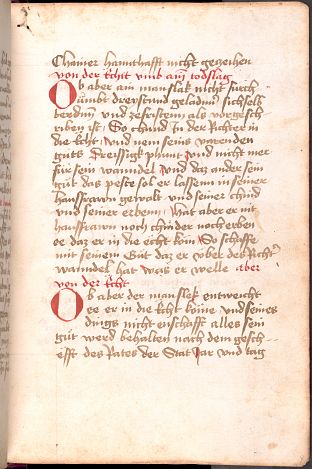 Chainer hannthafft nicht gezeihen
von der Echt vmb ain todslag
Ob aber ain manslak nicht furch
kumbt dreystund geladnn sich selb
berednn vnd zefristenn als vorgesch
riben ist So chund In der Richter in
die Echt Vnd nem seins varenden
guts dreissigk phunt vnd nicht mer
für sein wanndel Vnd daz ander sein
gut das peste sol er lassenn in seiner
hausfrawn gewalt vnd seiner chind
vnd seiner erbenn Hat aber er nit
hausfrawn noch chinder noch erben
ee daz er in die echt kom So schaffe
mit seinem Gut daz er vber des Richt
wanndel hat was er welle aber
von der Echt
Ob aber der manslek entweicht
ee er in die Echt kome vnd seines
dings nicht enschafft alles sein
gut werd behalten nach dem gesch
efft des Rates der Stat Jar vnd tag